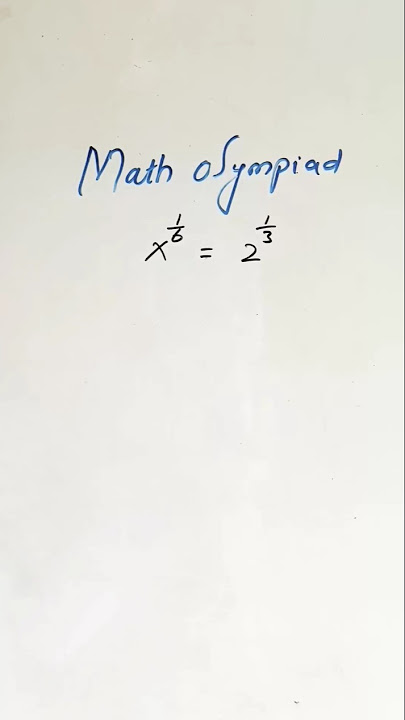 Math olympiad
x^{1/6} = 2^{1/3}